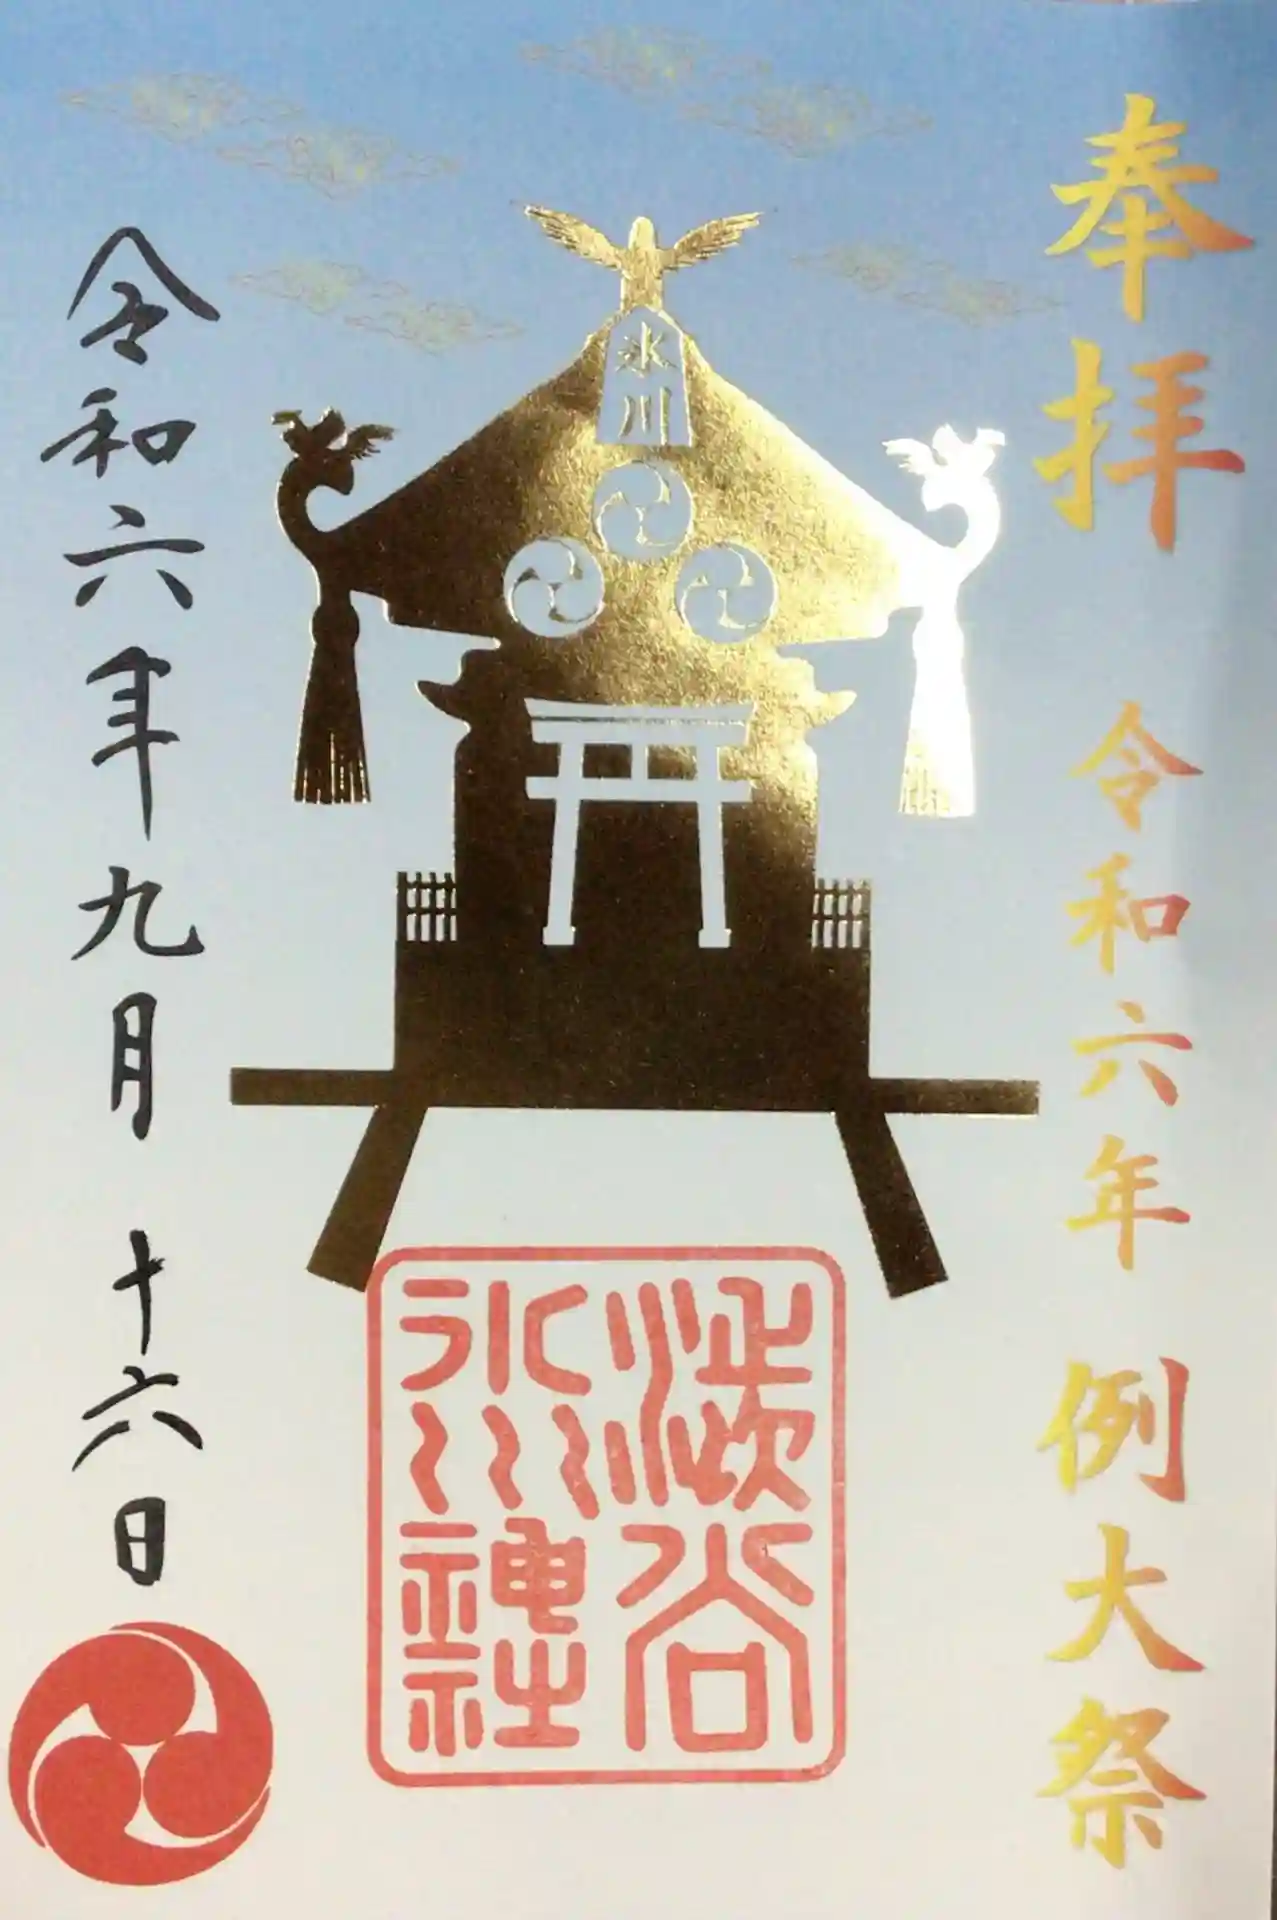 奉拝
令和六年 例大祭
氷川
澁谷
氷川神社
令和六年九月十六日